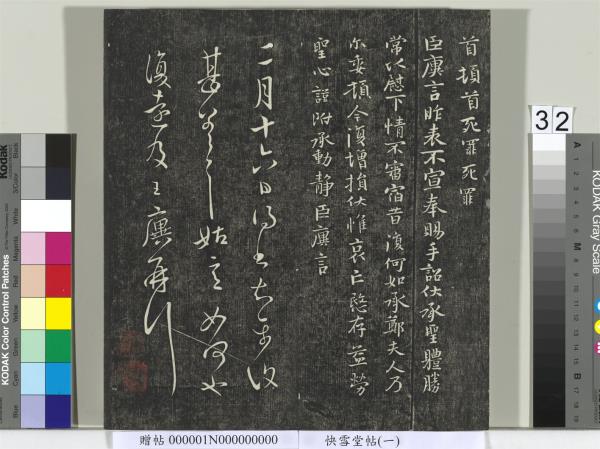 首頓首死罪死罪
臣廙言昨表不宣奉賜手詔伏承聖體勝
常以慰下情不審宿昔復何如承鄭夫人乃
尔委頓今復增損伏惟哀亡愍存益勞
聖心謹附承動靜臣廙言
二月十六日
姑
復 及王廙再行
32
KODAK Color Control Patches
Blue Cyan Green Yellow Red Magenta White 3/Color Black
KODAK Gray Scale
A 1 2 3 4 5 6 M 8 9 10 11 12 13 14 15 B 17 18 19
贈帖 000001N000000000
快雪堂帖(一)